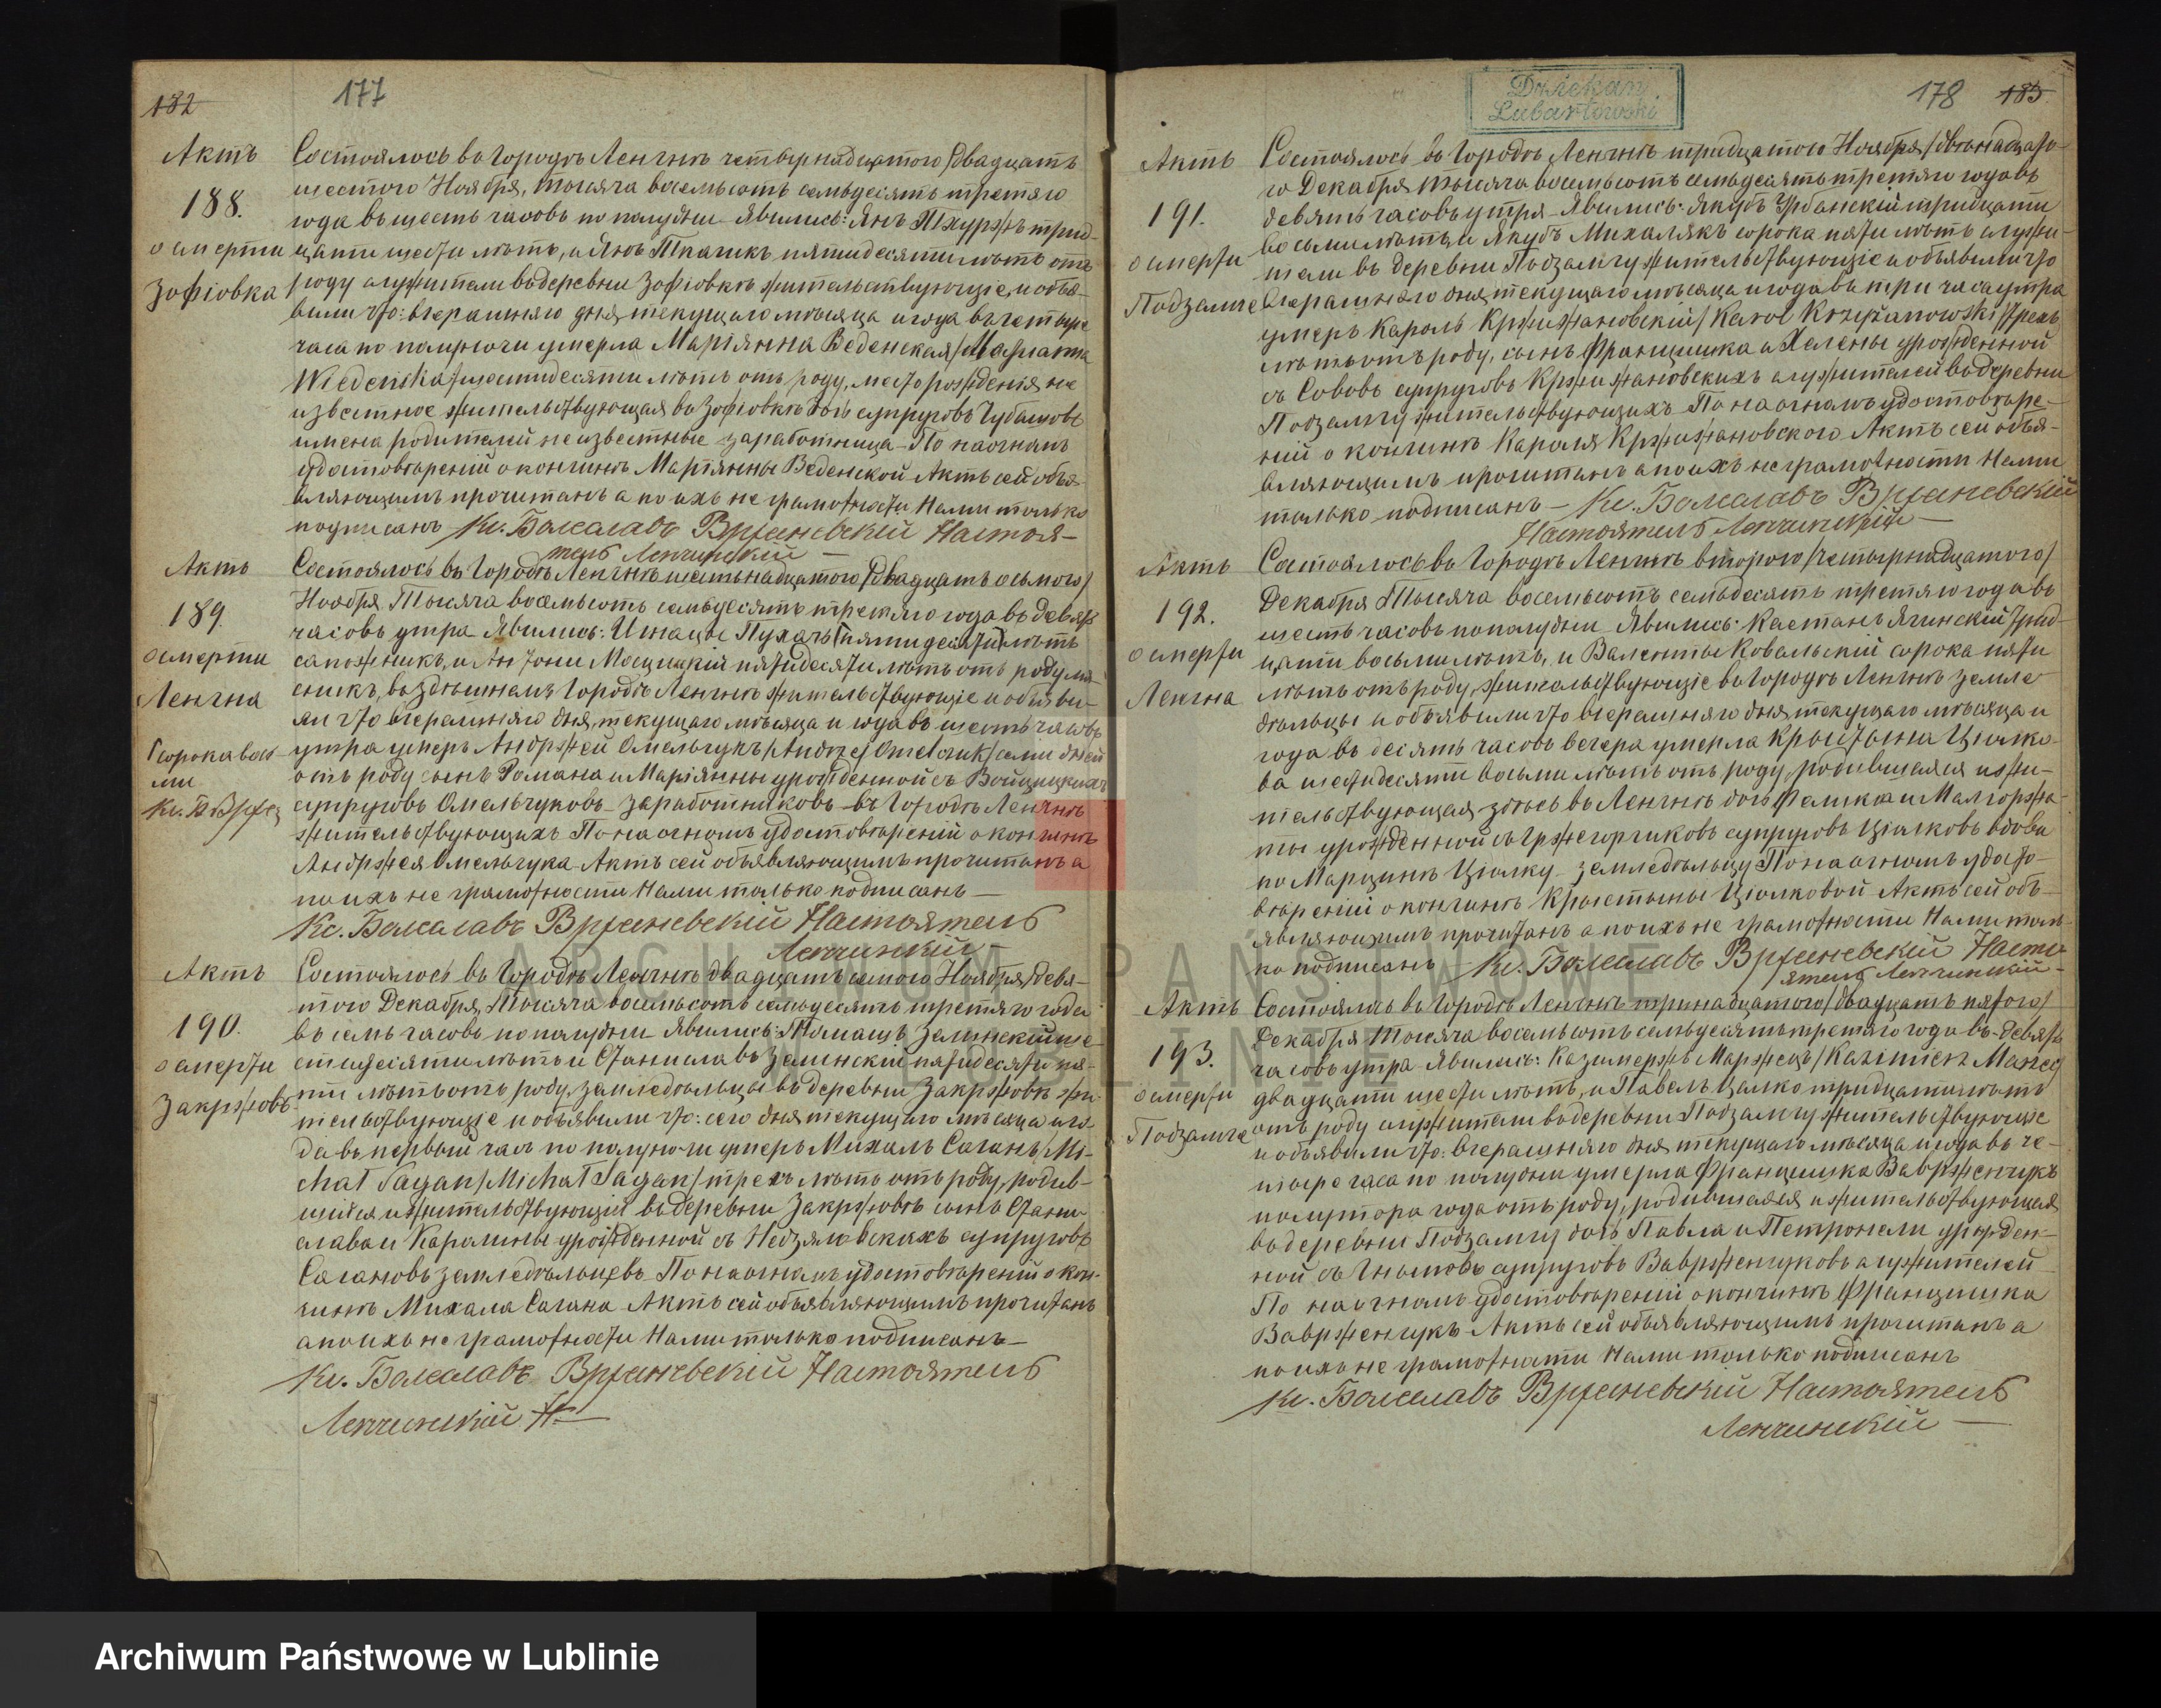 182
177
Актъ
188.
о смерти
Зофіовка
Состоялось въ Городѣ Ленчнѣ четырнадцатого /двадцать
шестого Ноября, тысяча восемьсотъ семьдесять третяго
года въ шесть часовъ по полудни Явились: Янъ трид-
цати шести лѣтъ, и Янъ Ткачикъ пятидесяти лѣтъ отъ
роду служители въ деревни Зофіовкѣ жительствующіе, и объя-
вили что: вчерашняго дня, текущаго мѣсяца и года въ четыре
часа по полуночи умерла Маріянна Веденская /Maryanna
Wiedeńska/ шестидесяти лѣтъ отъ роду, место рожденія не
известное жительствующая въ Зофіовкѣ дочь супруговъ
имена родителей неизвестные заработница – По наочнамъ
удостовѣреній о кончинѣ Маріянны Веденской Актъ сей объя-
вляющимъ прочитанъ а по ихъ не грамотности Нами только
подписанъ Кс. Болеславъ Врженевскій Настоя-
тель Ленчинскій
Актъ
189.
о смерти
Ленчна
Сорока вось-
ми
Кс. Б Држ
Состоялось въ Городѣ Ленчнѣ шестьнадцатого /двадцать осьмого/
Ноября Тысяча восемьсотъ семьдесять третяго года въ девять
часовъ утра Явились: Игнацы Пухачъ пятидесяти лѣтъ
сапожникъ, и Антони Мосцицкій пятидесяти лѣтъ отъ роду
въ здѣшнемъ Городѣ Ленчнѣ жительствующіе и объяви-
ли что вчерашняго дня, текущаго мѣсяца и года въ шесть часовъ
утра умеръ Андржей Омельчукъ /Andrzej Omelczuk/ семи дней
отъ роду сынъ Романа и Маріянны урожденной съ Войцицкихъ
супруговъ Омельчуковъ заработниковъ въ Городѣ Ленчнѣ
жительствующихъ По наочномъ удостовѣреній о кончинѣ
Андржея Омельчука Актъ сей объявляющимъ прочитанъ а
по ихъ не грамотности Нами только подписанъ –
Кс. Болеславъ Врженевскій Настоятель
Ленчинскій –
Актъ
190.
о смерти
Закржовъ
Состоялось въ Городѣ Ленчнѣ двадцать семого Ноября /девя-
того Декабря, Тысяча восемьсотъ семьдесять третяго года
въ семь часовъ по полудни Явились: Томашъ Зелинскій ше-
стидесяти лѣтъ и Станиславъ Зелинскій пятидесяти пя-
ти лѣтъ отъ роду, земледѣльцы въ деревни Закржовѣ жи-
тельствующіе и объявили что: сего дня текущаго мѣсяца и го-
да въ первый часъ по полуночи умеръ Михалъ Саганъ /Mi-
chał Sagan/ Michał Sagan/ трехъ лѣтъ отъ роду, родив-
шійся и жительствующій въ деревни Закржовѣ сынъ Стани-
слава и Каролины урожденной съ Недзяловскихъ супруговъ
Сагановъ земледѣльцевъ По наочнамъ удостовѣреній о кон-
чинѣ Михала Сагана Актъ сей объявляющимъ прочитанъ
а по ихъ не грамотности Нами только подписанъ –
Кс. Болеславъ Врженевскій Настоятель
Ленчинскій
Dziekan
Lubartowski
178
183
Актъ
191.
о смерти
Подзамче
Состоялось въ Городѣ Ленчнѣ тридцатого Ноября /двѣнадцато-
го Декабря Тысяча восемьсотъ семьдесять третяго года въ
девять часовъ утря – Явились: Якубъ Урбанскій тридцати
восьми лѣтъ, и Якубъ Михалякъ сорока пяти лѣтъ служи-
тели въ деревни Подзамчу жительствующіе и объявили что
вчерашняго дня, текущаго мѣсяца и года въ три часа утра
умеръ Кароль Кржижановскій /Karol Krzyżanowski/ трехъ
лѣтъ отъ роду, сынъ Францишка и Хелены урожденной
съ Сововъ супруговъ Кржижановскихъ служителей въ деревни
Подзамчу жительствующихъ – По наочнамъ удостовѣре-
ній о кончинѣ Кароля Кржижановского Актъ сей объя-
вляющимъ прочитанъ а по ихъ не грамотности Нами
только подписанъ – Кс. Болеславъ Врженевскій
Настоятель Ленчинскій –
Актъ
192.
о смерти
Ленчна
Состоялось въ Городѣ Ленчнѣ второго /четырнадцатого/
Декабря Тысяча восемьсотъ семьдесять третяго года въ
шесть часовъ по полудни Явились: Каетанъ Ягинскій трид-
цати восьми лѣтъ, и Валенты Ковальскій сорока пяти
лѣтъ отъ роду, жительствующіе въ Городѣ Ленчнѣ земле-
дѣльцы и объявили что вчерашняго дня, текущаго мѣсяца и
года въ десять часовъ вечера умерла Крыстына Цюлко-
ва шестидесяти восьми лѣтъ отъ роду, родившаяся и жи-
тельствующая здѣсь въ Ленчнѣ дочь Феликса и Малгоржа-
ты урожденной съ Гржегорчиковъ супруговъ Ціолковъ вдова
по Марцинѣ Цюлку земледѣльцу По наочномъ удосто-
вѣреній о кончинѣ Крыстыны Цюлковой Актъ сей объ-
являющимъ прочитанъ а по ихъ не грамотности Нами толь-
ко подписанъ Кс. Болеславъ Врженевскій Насто-
ятель Ленчинскій –
Актъ
193.
о смерти
Подзамче
Состоялось въ Городѣ Ленчнѣ тринадцатого /двадцать пятого/
Декабря Тысяча восемьсотъ семьдесять третяго года въ девять
часовъ утра Явились: Казимержъ Маржецъ /Kazimierz Marzec/
двадцати шести лѣтъ, и Павелъ Цалко тридцати лѣтъ
отъ роду служители въ деревни Подзамчу жительствующіе
и объявили что: вчерашняго дня текущаго мѣсяца и года въ че-
тыре часа по полудни умерла Францишка Ваврженчукъ
полутора года отъ роду, родившаяся и жительствующая
въ деревни Подзамчу дочь Павла и Петронели урожден-
ной съ супруговъ Вавржечуковъ служителей
По наочномъ удостовѣреній о кончинѣ Францишка
Вавржечукъ Актъ сей объявляющимъ прочитанъ а
по ихъ не грамотности Нами только подписанъ
Кс. Болеславъ Врженевскій Настоятель
Ленчинскій –
ARCHIWUM PAŃSTWOWE
W LUBLINIE
Archiwum Państwowe w Lublinie